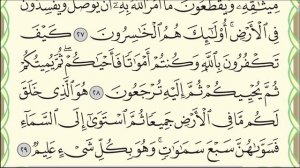 مِيثَـٰقِهِۦ وَيَقْطَعُونَ مَآ أَمَرَ ٱللَّهُ بِهِۦٓ أَن يُوصَلَ وَيُفْسِدُونَ
فِى ٱلْأَرْضِ ۚ أُو۟لَـٰٓئِكَ هُمُ ٱلْخَـٰسِرُونَ ٢٧ كَيْفَ
تَكْفُرُونَ بِٱللَّهِ وَكُنتُمْ أَمْوَٰتًا فَأَحْيَـٰكُمْ ۖ ثُمَّ يُمِيتُكُمْ
ثُمَّ يُحْيِيكُمْ ثُمَّ إِلَيْهِ تُرْجَعُونَ ٢٨ هُوَ ٱلَّذِى خَلَقَ
لَكُم مَّا فِى ٱلْأَرْضِ جَمِيعًا ثُمَّ ٱسْتَوَىٰٓ إِلَى ٱلسَّمَآءِ
فَسَوَّىٰهُنَّ سَبْعَ سَمَـٰوَٰتٍ ۚ وَهُوَ بِكُلِّ شَىْءٍ عَلِيمٌ ٢٩